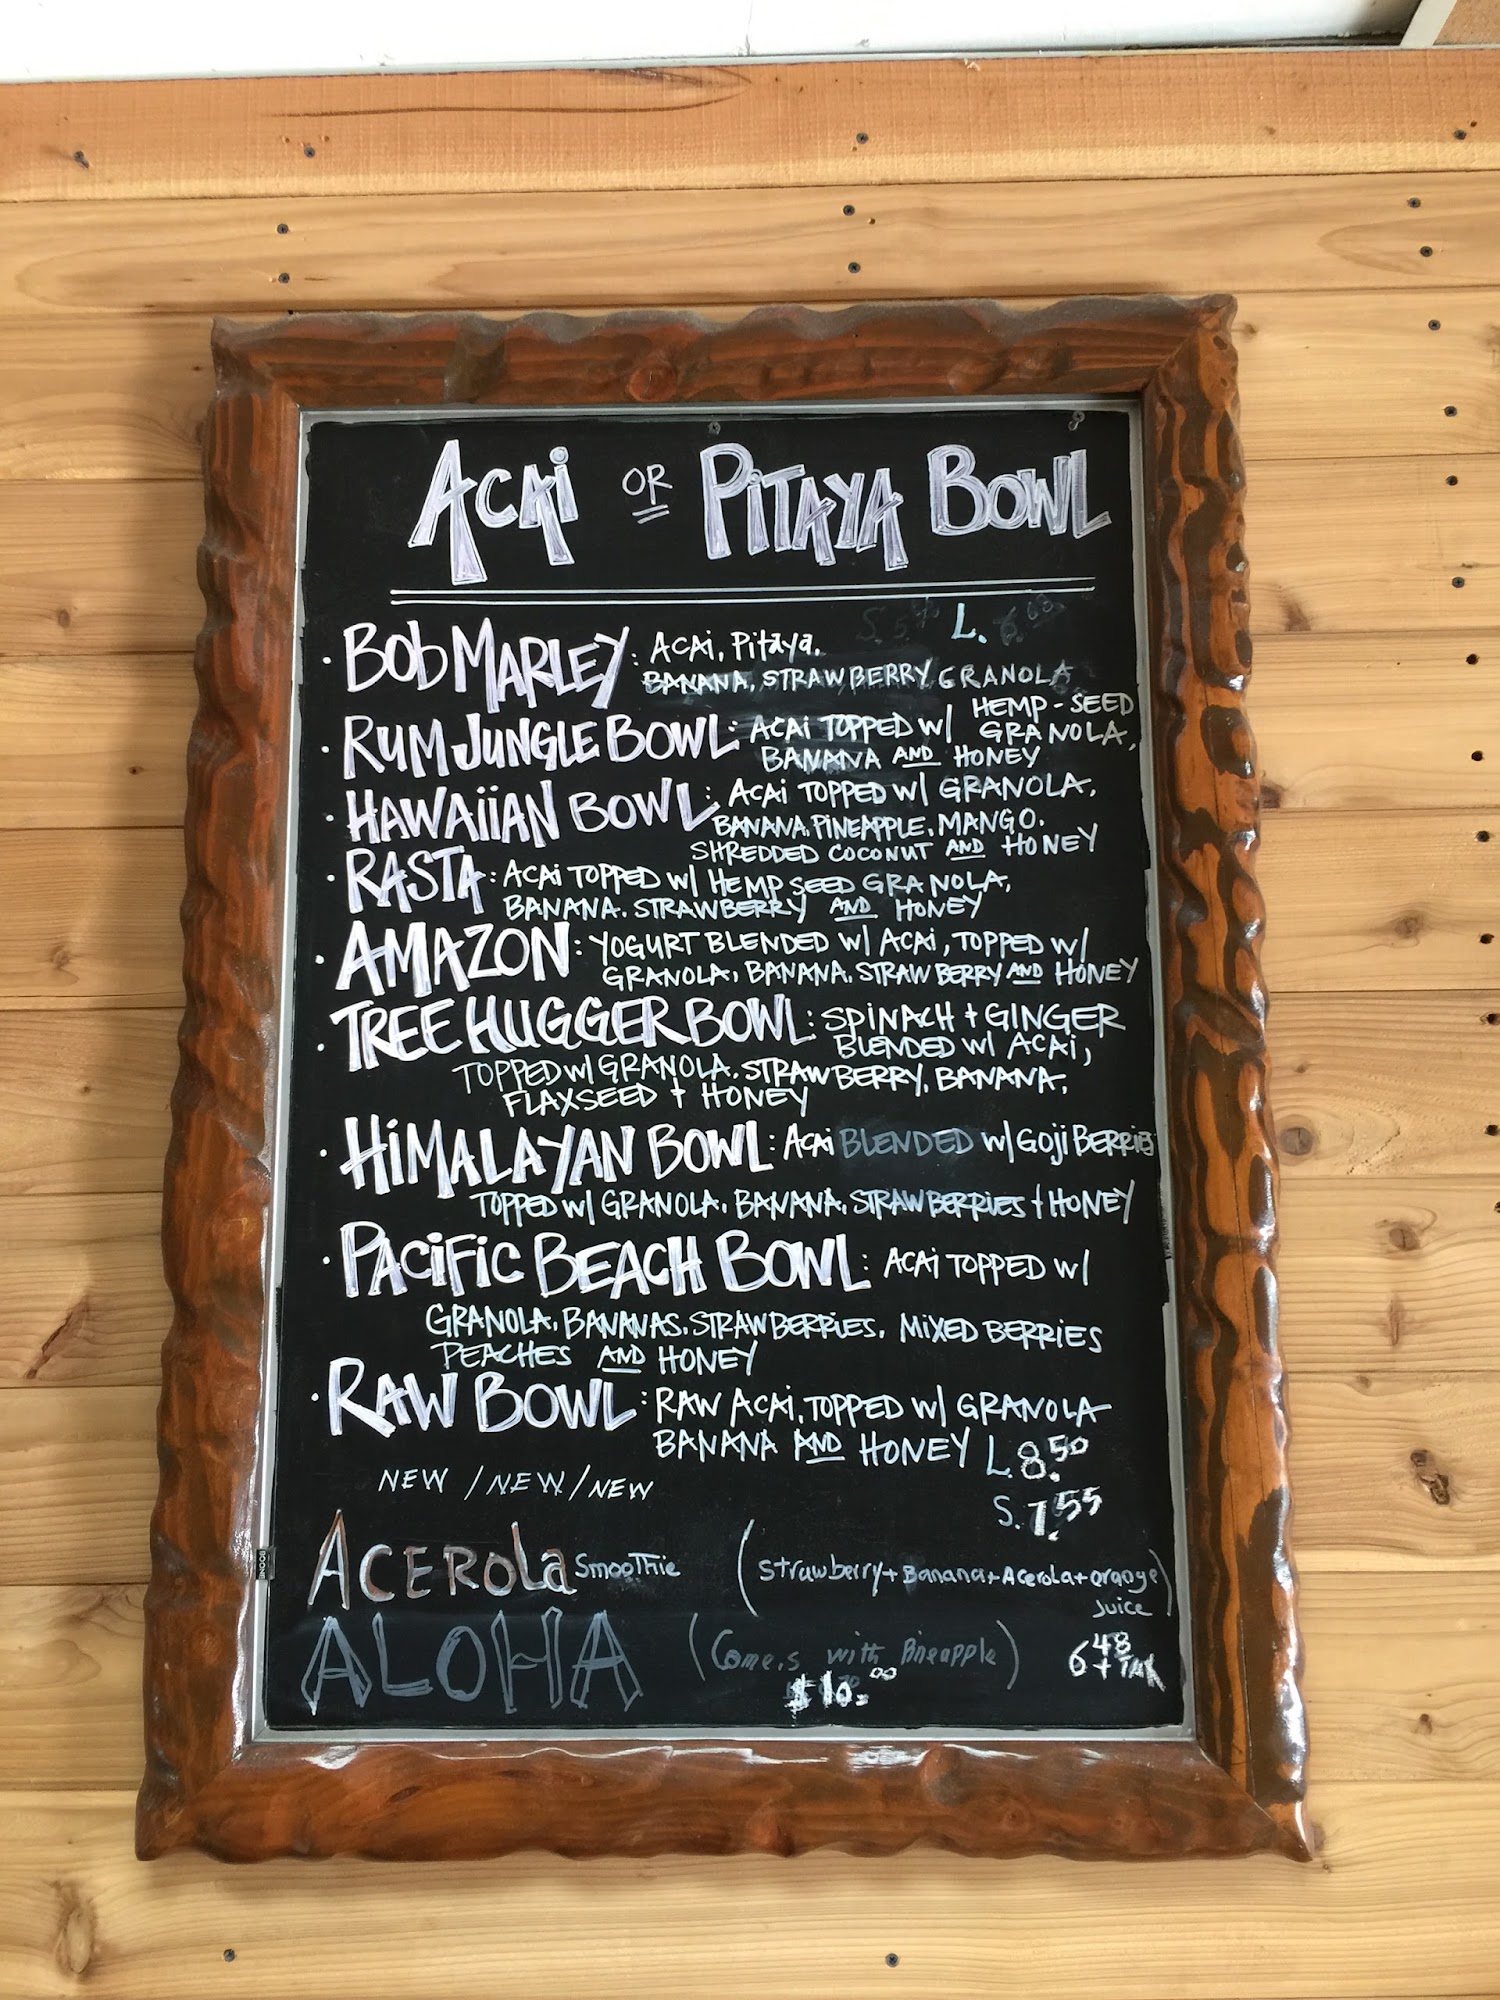 ACAi OR PiTAYA BOWL
L.
· BOB MARLEY: ACAi, Pitaya,
BANANA, STRAWBERRY GRANOLA
· RUM JUNGLE BOWL: ACAi TOPPED W/ HEMP-SEED
GRANOLA,
BANANA AND HONEY
· HAWAiiAN BOWL: ACAi TOPPED W/ GRANOLA,
BANANA, PINEAPPLE, MANGO,
SHREDDED COCONUT AND HONEY
· RASTA: ACAi TOPPED W/ HEMP SEED GRANOLA,
BANANA, STRAWBERRY AND HONEY
· AMAZON: YOGURT BLENDED W/ ACAi, TOPPED W/
GRANOLA, BANANA, STRAWBERRY AND HONEY
· TREE HUGGER BOWL: SPINACH + GINGER
BLENDED W/ ACAi,
TOPPED W/ GRANOLA, STRAWBERRY, BANANA,
FLAXSEED + HONEY
· HiMALAYAN BOWL: ACAi BLENDED W/ GOJI BERRiES
TOPPED W/ GRANOLA, BANANA, STRAWBERRiES + HONEY
· PACiFiC BEACH BOWL: ACAi TOPPED W/
GRANOLA, BANANAS, STRAWBERRiES, MiXED BERRiES
PEACHES AND HONEY
· RAW BOWL: RAW ACAi, TOPPED W/ GRANOLA
BANANA AND HONEY L. 8.50
NEW / NEW / NEW
S. 7.55
ACEROLa SmooThie (Strawberry + Banana + Acerola + orange
Juice)
ALOHA (Comes with Pineapple)
6 48 + TAX
$10.00